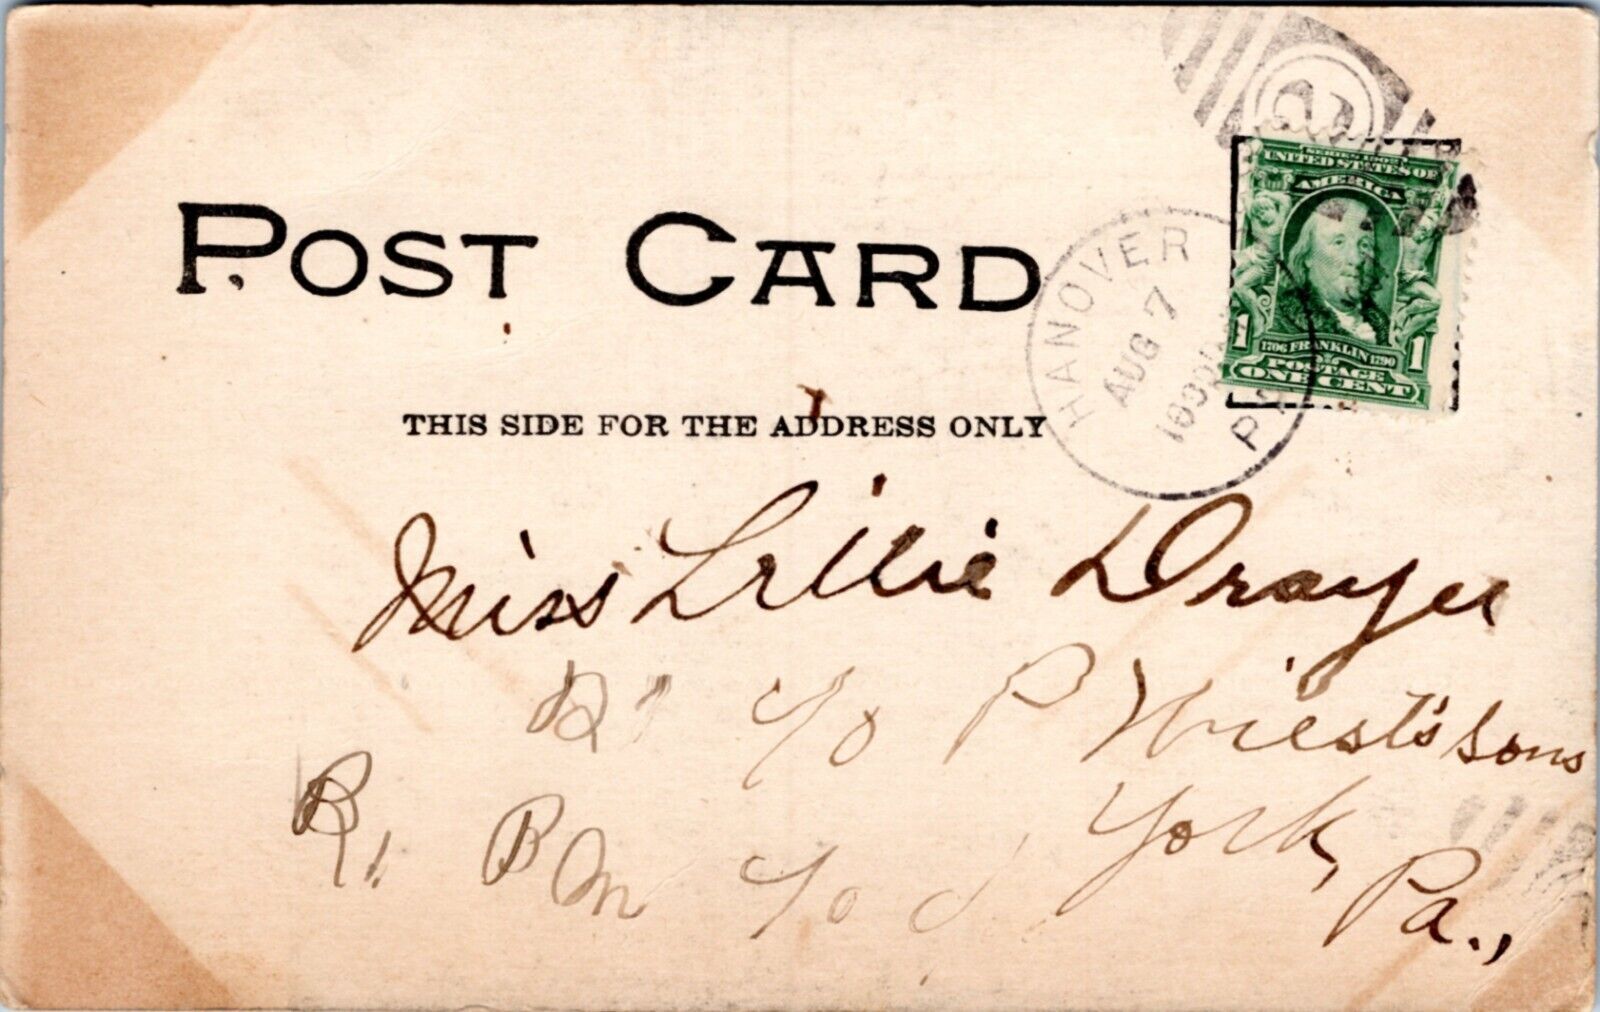 POST CARD
THIS SIDE FOR THE ADDRESS ONLY
HANOVER
AUG 7
PA
SERIES 1902
UNITED STATES OF
AMERICA
1 1
1706 FRANKLIN 1790
POSTAGE
ONE CENT
Miss Lillie Drayer
P Wiest's Sons
York,
Pa.,